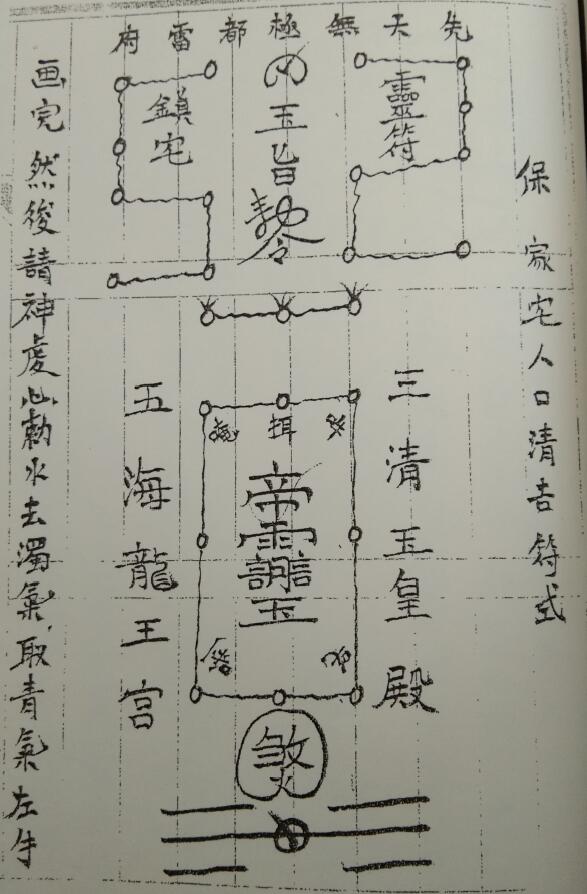 保家宅人口清吉符式
先天無極都雷府
靈符
玉旨
敕令
鎮宅
三清玉皇殿
五海龍王宮
画完然後請神虔心勅水去濁氣取青氣左手